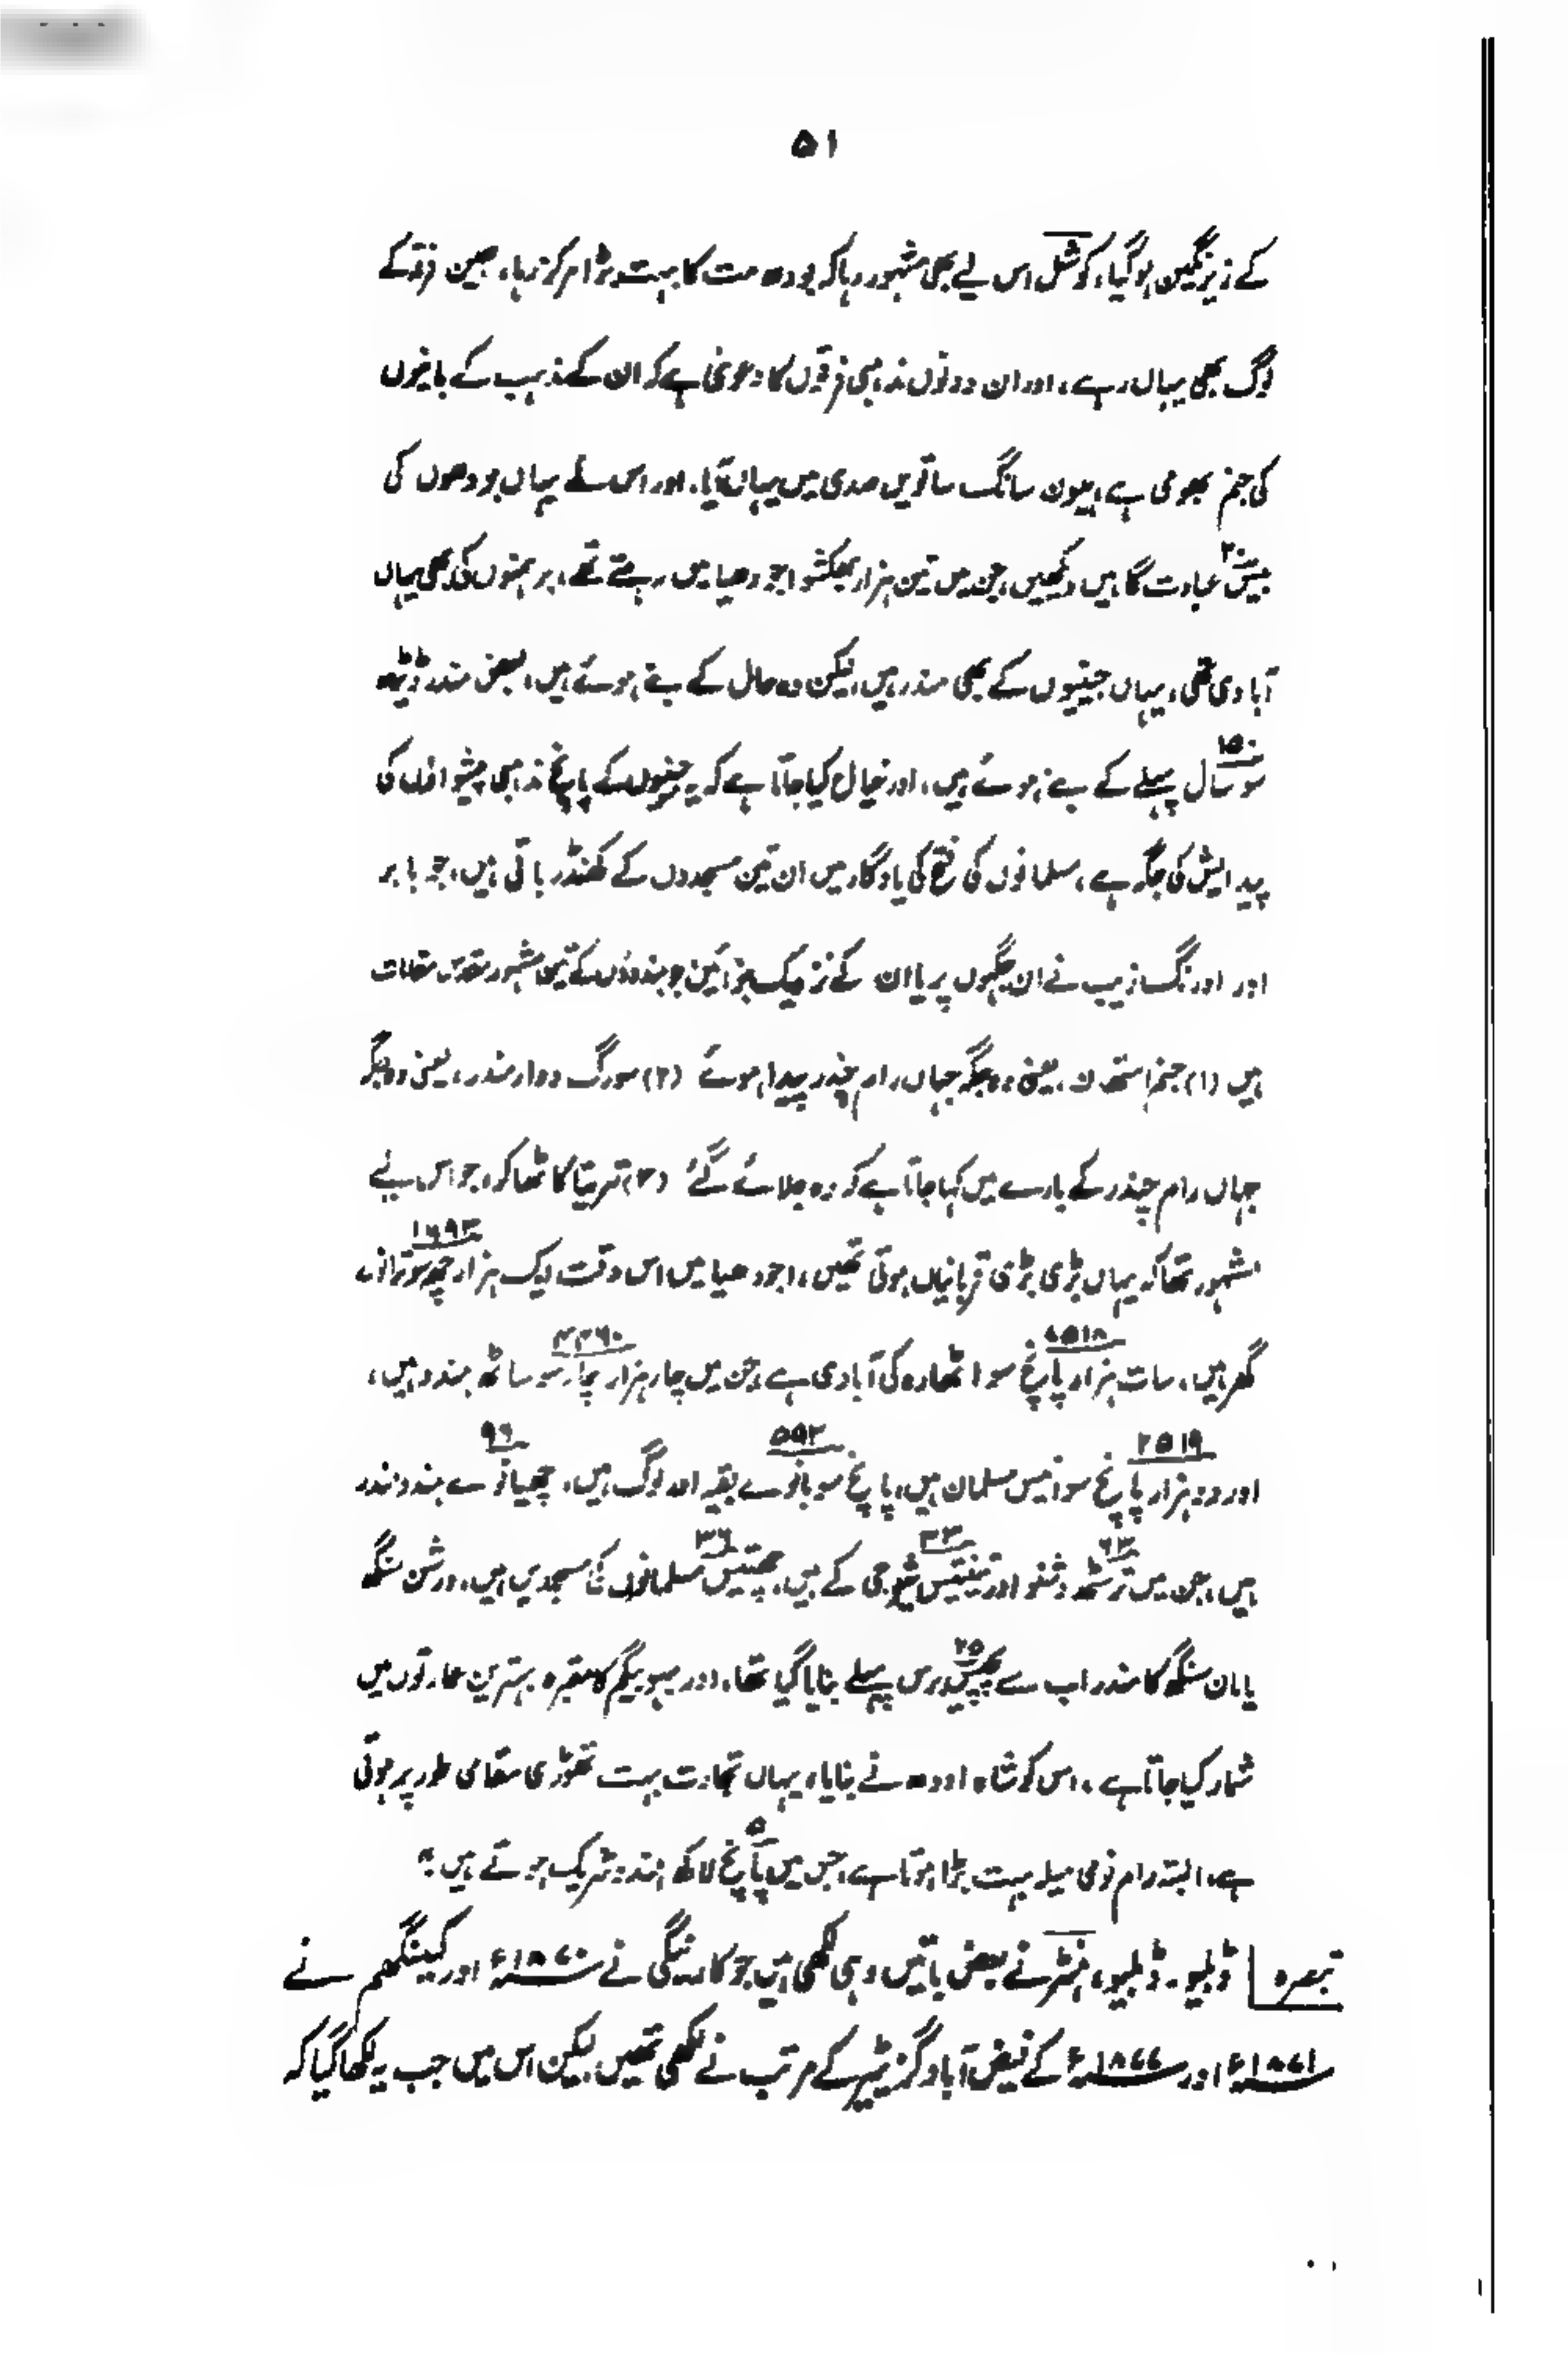 ۵۱
کے زیرنگیں ہوگیا، کوشل اس لیے بھی مشہور رہا کہ بودھ مت کا بہت بڑا مرکز رہا، جین فرقہ کے
لوگ بھی یہاں رہے، اور ان دونوں مذہبی فرقوں کا دعویٰ ہے کہ ان کے مذہب کے بانیوں
کی جنم بھومی ہے، ہیون سانگ ساتویں صدی میں یہاں آیا، اور اس نے یہاں بودھوں کی
۲۰
بیس عبادت گاہیں دیکھیں، جن میں تین ہزار بھکشو اجودھیا میں رہتے تھے، برہمنوں کی بھی یہاں
آبادی تھی، یہاں جینیوں کے بھی مندر ہیں، لیکن وہ حال کے بنے ہوئے ہیں، بعض مندر ڈیڑھ
۱۵۰
سو سال پہلے کے بنے ہوئے ہیں، اور خیال کیا جاتا ہے کہ یہ جینیوں کے پانچ مذہبی پیشواؤں کی
پیدایش کی جگہ ہے، مسلمانوں کی فتح کی یادگار میں ان تین مسجدوں کے کھنڈر باقی ہیں، جو بابر
اور اورنگ زیب نے ان جگہوں پر یا ان کے نزدیک بنوائیں جو ہندوؤں کے تین مشہور مقدس مقامات
ہیں (۱) جنم استھان، یعنی وہ جگہ جہاں رام چندر پیدا ہوئے (۲) سورگ دوار مندر، یعنی وہ جگہ
جہاں رام چندر کے بارے میں کہا جاتا ہے کہ وہ جلائے گئے (۳) تریتا کا ٹھاکر، جو اس لیے
۱۶۹۳
مشہور تھا کہ یہاں بڑی بڑی قربانیاں ہوتی تھیں، اجودھیا میں اس وقت ایک ہزار چھ سو ترانوے
۷۵۱۸ ۴۴۶۰
گھر ہیں، سات ہزار پانچ سو اٹھارہ کی آبادی ہے جن میں چار ہزار چار سو ساٹھ ہندو ہیں،
۲۵۱۹ ۵۹۲ ۹۶
اور دو ہزار پانچ سو انیس مسلمان ہیں، پانچ سو بانوے بقیہ اور لوگ ہیں، چھیانوے ہندو مندر
۶۳ ۳۳ ۳۶
ہیں، جن میں ترسٹھ وشنو اور تینتیس شیوجی کے ہیں، چھتیس مسلمانوں کی مسجدیں ہیں، درشن سنگھ
۲۵
یا مان سنگھ کا مندر اب سے پچیس برس پہلے بنایا گیا تھا، اور بہو بیگم کا مقبرہ بہترین عمارتوں میں
شمار کیا جاتا ہے، اس کو شاہ اودھ نے بنایا، یہاں تجارت بہت تھوڑی مقامی طور پر ہوتی
۵
ہے، البتہ رام نومی میلہ بہت بڑا ہوتا ہے، جس میں پانچ لاکھ ہندو شریک ہوتے ہیں۔"
تبصرہ | ڈبلیو۔ ڈبلیو، ہنٹر نے بعض باتیں وہی لکھی ہیں جو کارنیگی نے ۱۸۷۰ء اور کینگھم نے
۱۸۷۱ء اور ۱۸۷۷ء کے فیض آباد گزیٹیر کے مرتب نے لکھی تھیں، لیکن اس میں جب یہ لکھا گیا کہ